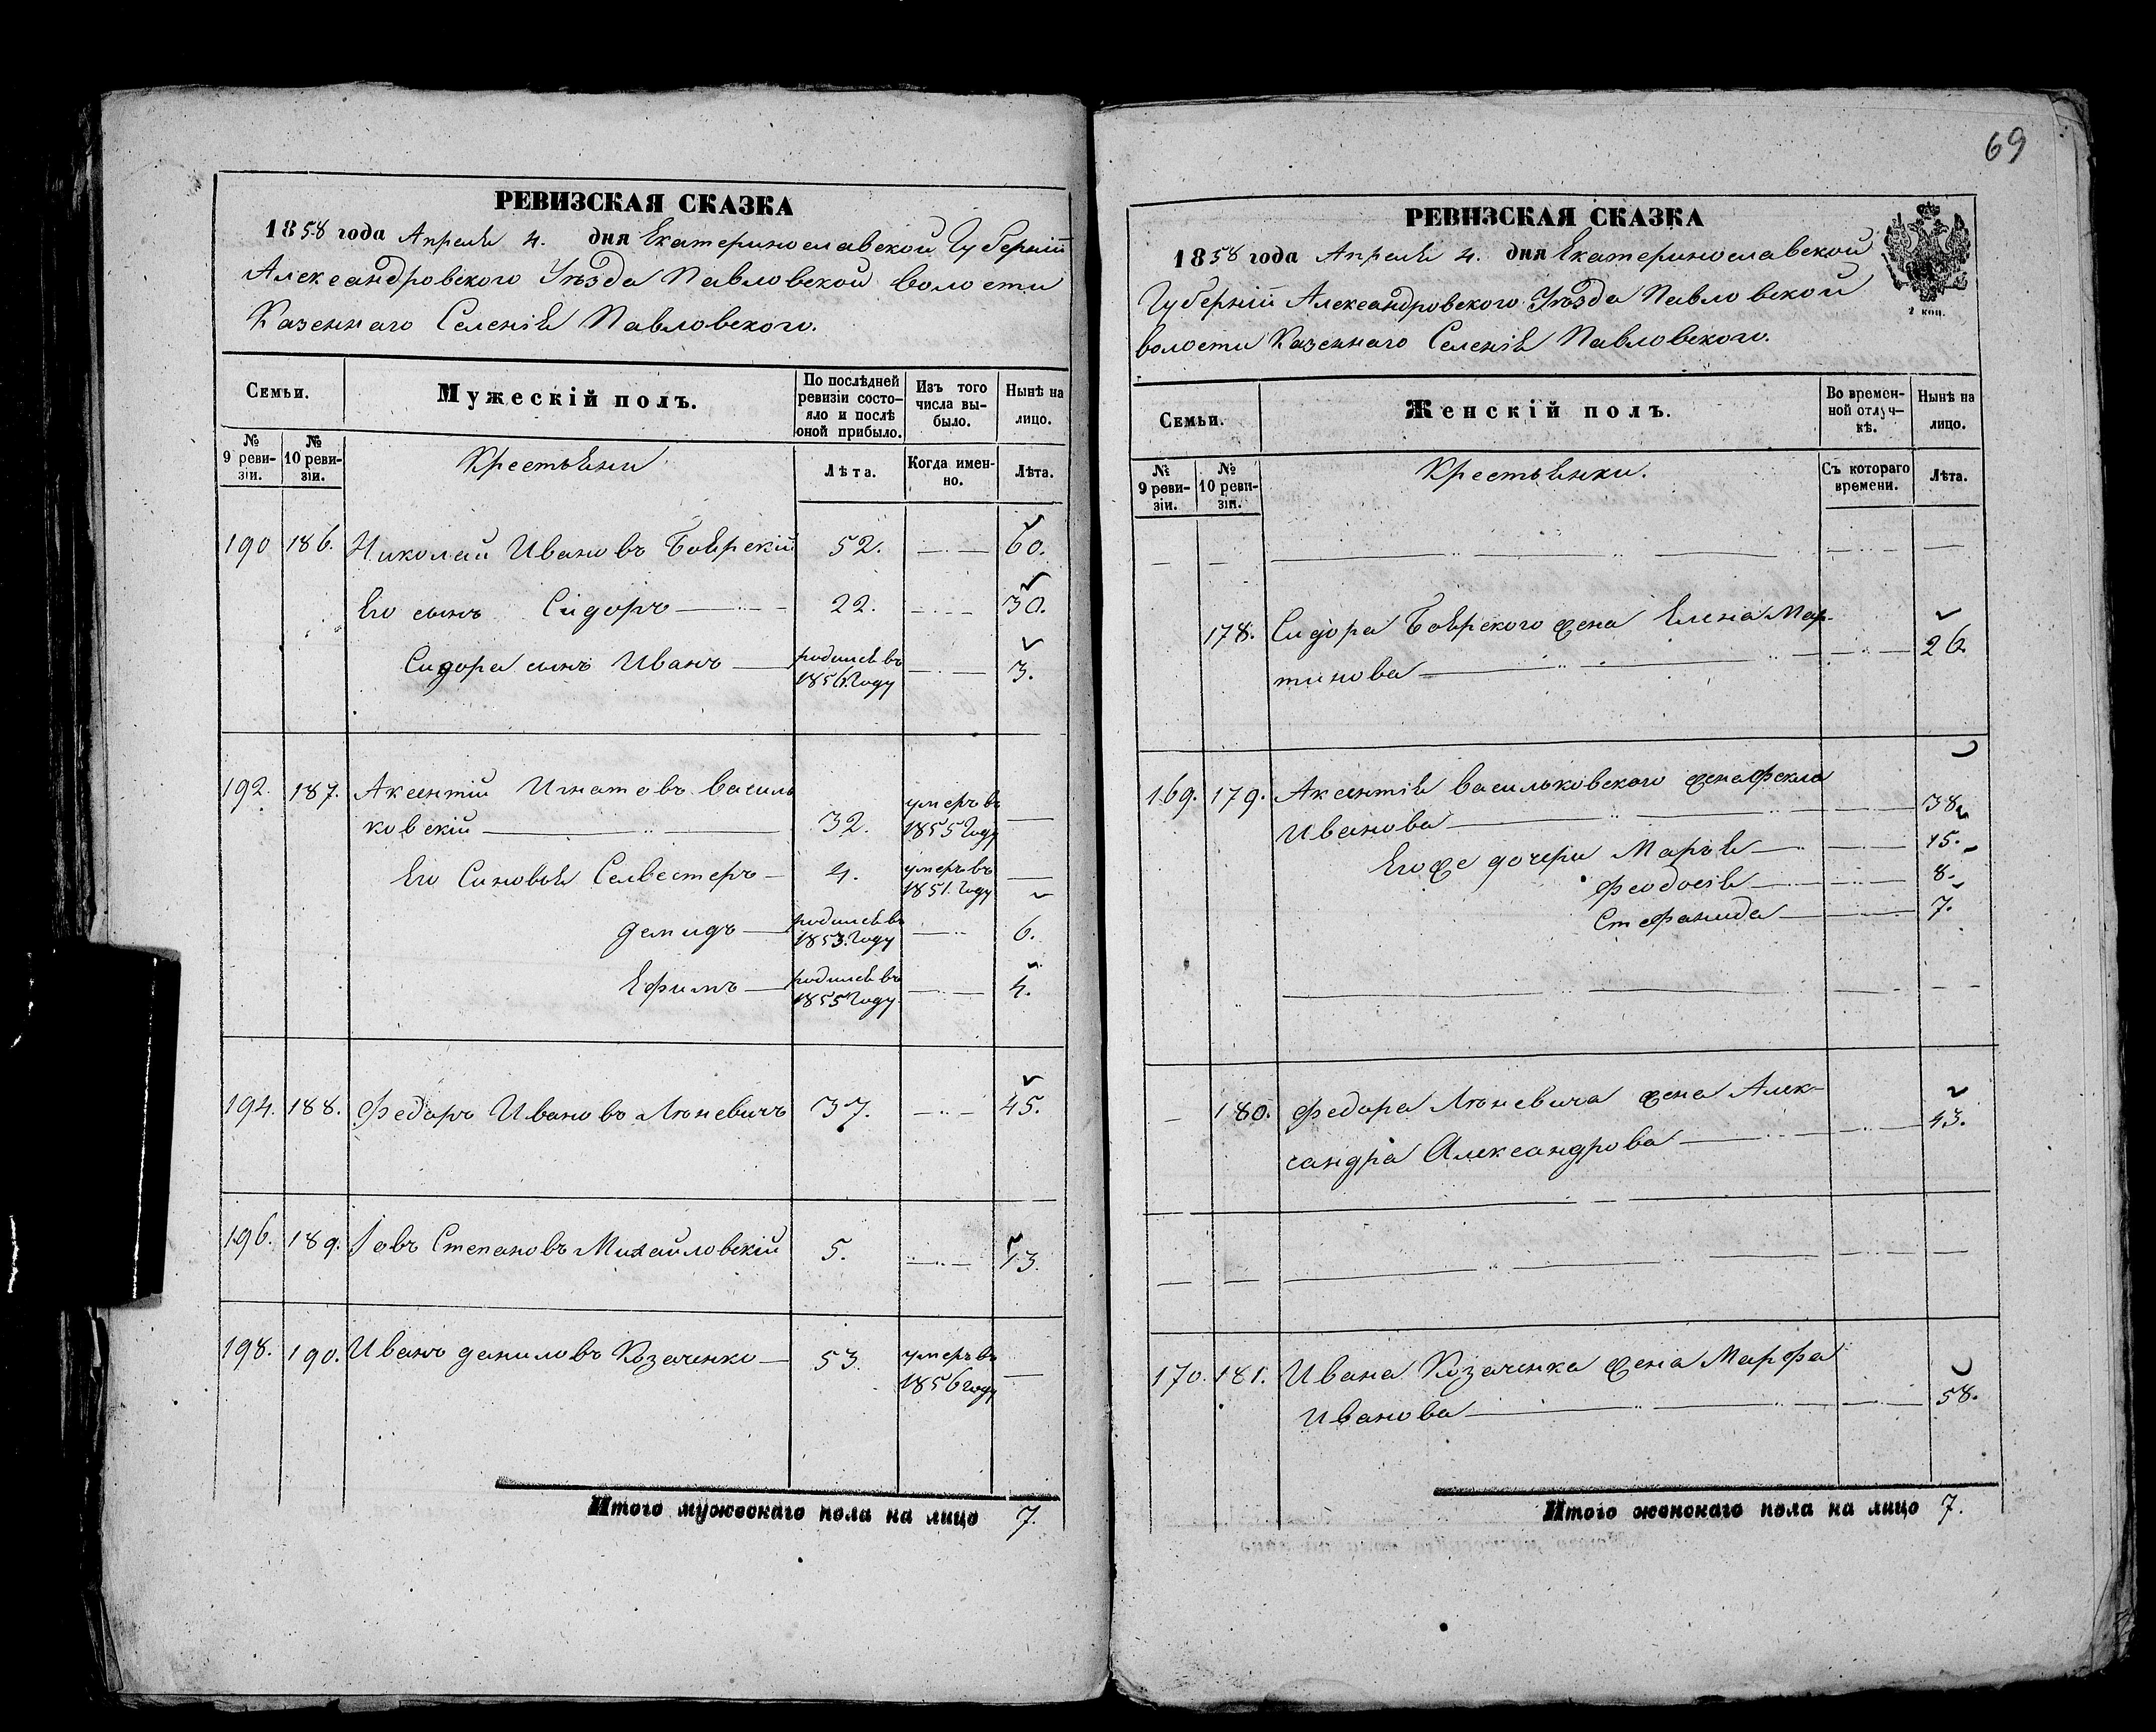 РЕВИЗСКАЯ СКАЗКА
1858 года Апреля 4. дня Екатеринославской Губерніи
Александровского Уезда Павловской волости
Казеннаго Селенія Павловского.
Семьи.
Мужескій полъ.
По послѣдней ревизіи состо-
яло и послѣ
оной прибыло.
Изъ того
числа вы-
было.
Нынѣ на
лицо.
№
9 реви-
зіи.
№
10 реви-
зіи.
Крестьяни
Лѣта.
Когда имен-
но.
Лѣта.
190 186. Николай Ивановъ Боярскій 52. 60.
Его сынъ Сидоръ 22. 30.
Сидора сынъ Иванъ родился въ 3.
1856 Году
192. 187. Аксентій Игнатовъ Василь
ковскій 32. умеръ въ
1855 Году
Его Синовья Селвестеръ 4. умеръ въ
1851. Году
Демидъ родился въ 6.
1853. Году
Ефимъ родился въ 4.
1855 Году
194. 188. Федоръ Ивановъ Люневичъ 37. 45.
196. 189. Іовъ Степановъ Михайловскій 5. 13.
198. 190. Иванъ Даниловъ Козаченко 53. умеръ въ
1856 году
Итого мужескаго пола на лицо 7.
69
РЕВИЗСКАЯ СКАЗКА
1858 года Апреля 4. дня Екатеринославской
Губерніи Александровского Уезда Павловской
волости Казеннаго Селенія Павловского.
2 коп.
Семьи.
Женскій полъ.
Во времен-
ной отлуч-
кѣ.
Нынѣ на
лицо.
№
9 реви-
зіи.
№
10 реви-
зіи.
Крестьянки.
Съ котораго
времени.
Лѣта.
178. Сидора Боярского жена Елена Мар-
тинова 26.
169. 179. Аксентія Васильковского жена Фекла
Иванова 38
Его же дочери Марья 15.
Феодосія 8.
Стефанида 7.
180. Федора Люневича жена Алек-
сандра Александрова 43.
170. 181. Ивана Козаченка жена Марфа
Иванова 58.
Итого женскаго пола на лицо 7.